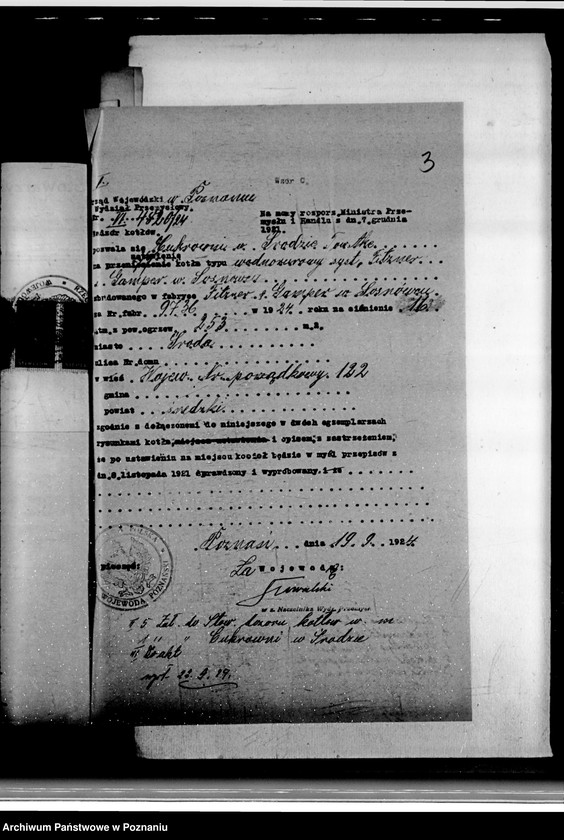 3
Wzor C.
rząd Wojewódzki w Poznaniu
Wydział Przemysłowy,
r. VI. 4820/24
Nadzór kotłów.
Na mocy rozporz. Ministra Prze-
mysłu i Handlu z dn. 7. grudnia
1921.
ozwala się Cukrowni w. Środzie Tow. Akc.
ustawienie
na kotła typu wodnorurowy syst. Fitzner
Gamper w. Sosnowcu
budowanego w fabryce Fitzner i Gamper w Sosnowcu
za Nr. fabr. w 1924. roku na ciśnienie 16
atm. z pow. ogrzew. 253 m.2,
miasto Środa
ulica Nr. domu
w wieś Wojew. Nr. porządkowy. 122
gmina
powiat średzki.
zgodnie z dołączonemi do niniejszego w dwóch egzemplarzach
rysunkami kotła, miejsca ustawienia i opisem, z zastrzeżeniem,
że po ustawieniu na miejscu kocioł będzie w myśl przepisów z
dn. 8, listopada 1921 sprawdzony i wypróbowany.
Poznań dnia 19. 9. 1924
pieczęć:
Za Wojewodę:
Kowalski
w z. Naczelnika Wydz. Przemysł.
WOJEWODA POZNAŃSKI
5 Zał. do Stow. dozoru kotłów w. m
" " Cukrowni w Środzie
akt
wys. 22. 9. 24.
Archiwum Państwowe w Poznaniu